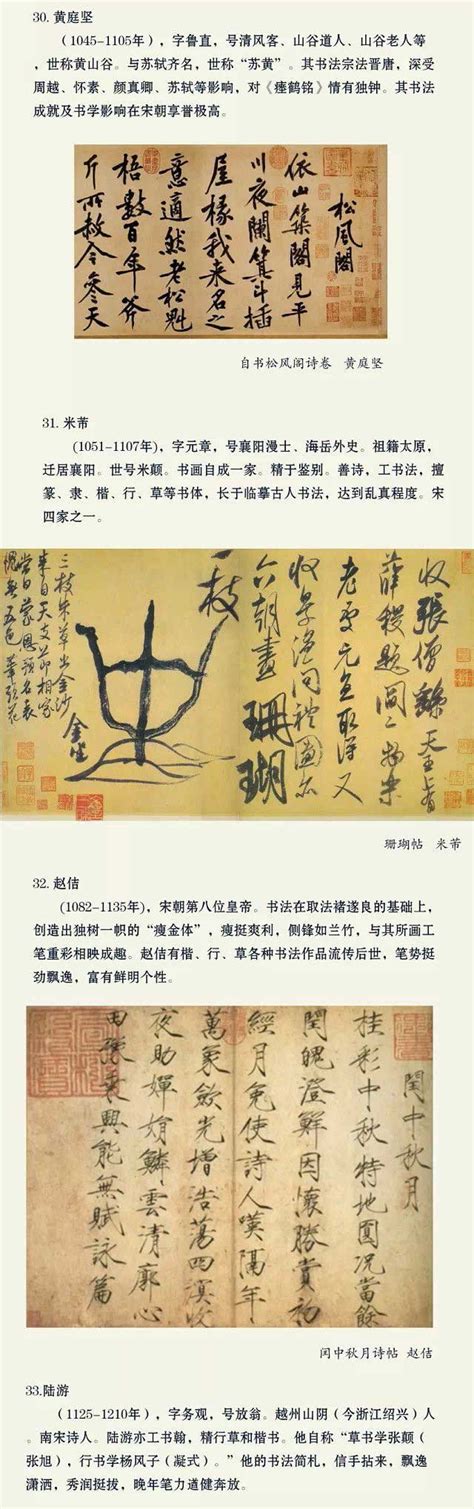 30. 黄庭坚
（1045-1105年），字鲁直，号清风客、山谷道人、山谷老人等
，世称黄山谷。与苏轼齐名，世称“苏黄”。其书法宗法晋唐，深受
周越、怀素、颜真卿、苏轼等影响，对《瘗鹤铭》情有独钟。其书法
成就及书学影响在宋朝享誉极高。
松風閣
依山築閣見平
川夜闌箕斗插
屋椽我来名之
意適然老松魁
梧數百年斧
斤所赦今參天
自书松风阁诗卷 黄庭坚
31. 米芾
(1051-1107年)，字元章，号襄阳漫士、海岳外史。祖籍太原，
迁居襄阳。世号米颠。书画自成一家。精于鉴别。善诗，工书法，擅
篆、隶、楷、行、草等书体，长于临摹古人书法，达到乱真程度。宋
四家之一。
收張僧繇天王上有
薛稷題閻二物樂
老處元直取得又
收景溫問禮圖亦
六朝畫珊瑚
一枝
金坐
三枝朱草出金沙
来自天支节相家
當日蒙恩预名表
愧無五色筆頭花
珊瑚帖 米芾
32. 赵佶
(1082-1135年)，宋朝第八位皇帝。书法在取法褚遂良的基础上，
创造出独树一帜的“瘦金体”，瘦挺爽利，侧锋如兰竹，与其所画工
笔重彩相映成趣。赵佶有楷、行、草各种书法作品流传后世，笔势挺
劲飘逸，富有鲜明个性。
閏中秋月
桂彩中秋特地圓况當餘
閏魄澄鮮因懷勝賞初
經月免使詩人嘆隔年
萬象歛光增浩蕩四溟收
夜助嬋娟鱗雲清廓心
田豫乘興能無賦詠篇
闰中秋月诗帖 赵佶
33.陆游
（1125-1210年），字务观，号放翁。越州山阴（今浙江绍兴）人
。南宋诗人。陆游亦工书翰，精行草和楷书。他自称“草书学张颠（
张旭），行书学杨风子（凝式）。”他的书法简札，信手拈来，飘逸
潇洒，秀润挺拔，晚年笔力遒健奔放。